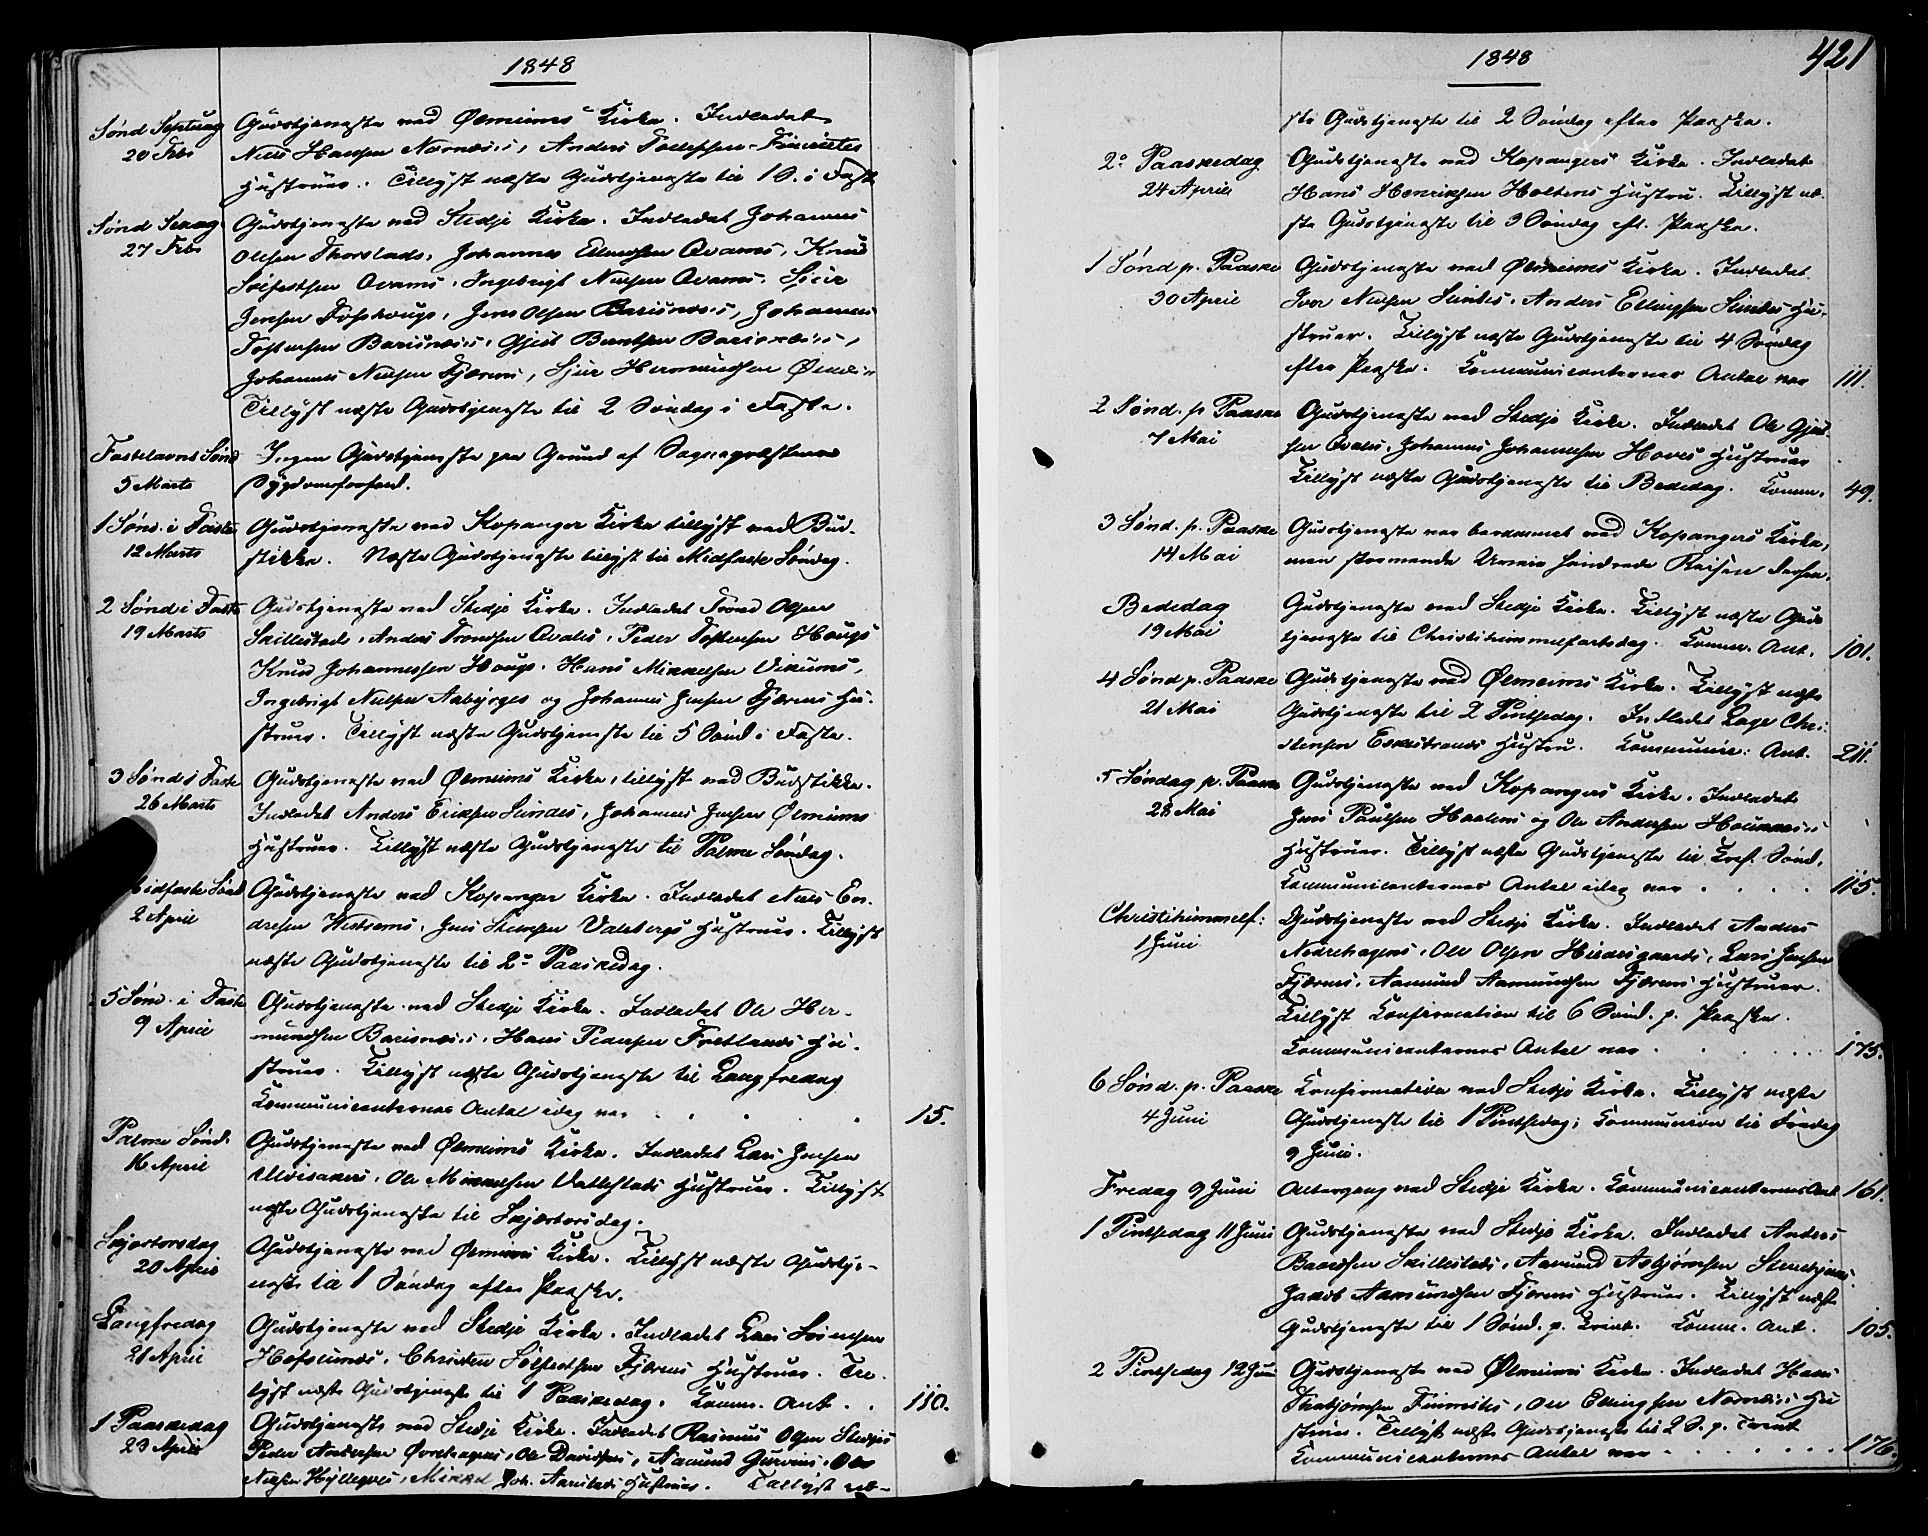 1848
Sønd Septuag
20 Febr
Gudstjeneste ved Ølmeims Kirke. Indledet
Niels Hansen Nornæs's, Anders Tollefsen Finnetes
Hustruer. Tillyst næste Gudstjeneste til 1 S. i Faste
Sønd Sexag
27 Febr
Gudstjeneste ved Stedje Kirke. Indledet Johannes
Olsen Thorstads, Johannes Ellendsen Qvams, Knud
Sølfestsen Qvams, Ingebrigt Nielsen Qvams, Sjur
Jensen Foshougs, Jens Olsen Barsnæs's, Johannes
Tostensen Barsnæs's, Gjert Berntsen Barsnæs's,
Johannes Nielsen Fjærens, Sjur Hermundsen
Tillyst næste Gudstjeneste til 2 Søndag i Faste.
Fastelavns Sønd
5 Marts
Ingen Gudstjeneste paa Grund af Sognepræstens
Sygdomsforfald.
1 Sønd. i Faste
12 Marts
Gudstjeneste ved Kopanger Kirke tillyst ved Bud-
stikke. Næste Gudstjeneste tillyst til Midfaste Søndag.
2 Sønd i Faste
19 Marts
Gudstjeneste ved Stedje Kirke. Indledet Trond Olsen
Skillestads, Anders Trondsen Qvales, Peder Tostensen Hougs
Knud Johannessen Hougs, Hans Mikkelsen Vikums,
Ingebrigt Nielsen Aabyrges og Johannes Jensen Fjærens Hu-
struer. Tillyst næste Gudstjeneste til 5 Sønd i Faste.
3 Sønd i Faste
26 Marts
Gudstjeneste ved Ølmeims Kirke, tillyst ved Budstikke.
Indledet Anders Eriksen Slindes, Johannes Jensen Ølmeims
Hustruer. Tillyst næste Gudstjeneste til Palme Søndag.
Midfaste Sønd
2 April
Gudstjeneste ved Kopanger Kirke. Indledet Niels En-
dresen Vestrems, Jens Steensen Valebergs Hustruer. Tillyst
næste Gudstjeneste til 2den Paaskedag.
5 Sønd. i Faste
9 April
Gudstjeneste ved Stedje Kirke. Indledet Ole Her-
mundsen Barsnæs's, Hans Pedersen Fretlands Hu-
struer. Tillyst næste Gudstjeneste til Langfredag
Kommunicanternes Antal idag var . . . 15.
Palme Sønd.
16 April
Gudstjeneste ved Ølmeims Kirke. Indledet Lars Jensen
Ulvisakers, Ole Mikkelsen Vallestads Hustruer. Tillyst
næste Gudstjeneste til Skjærtorsdag.
Skjærtorsdag
20 April
Gudstjeneste ved Ølmeims Kirke. Tillyst næste Gudstje-
neste til 1 Søndag efter Paaske.
Langfredag
21 April
Gudstjeneste ved Stedje Kirke. Indledet Lars Iversen
Hofslunds, Christen Sølfestsen Fjærens Hustruer. Til-
lyst næste Gudstjeneste til 1 Paaskedag. Komm. Ant. . . 110.
1 Paaskedag
23 April
Gudstjeneste ved Stedje Kirke. Indledet Rasmus Olsen Stedjes
Peder Andersen Øvrehagens, Ole Davidsens, Aamund Gurvens, Ole
Nielsen Hyllegves, Mikkel Joh. Navnstads Hustruer. Tillyst næ-
1848
421
ste Gudstjeneste til 2 Søndag efter Paaske.
2den Paaskedag
24 April
Gudstjeneste ved Kopangers Kirke. Indledet
Hans Henriksen Holtens Hustru. Tillyst næ-
ste Gudstjeneste til 3 Søndag eft. Paaske.
1 Sønd p. Paaske
30 April
Gudstjeneste ved Ølmeims Kirke. Indledet
Iver Nielsen Slindes, Anders Ellingsen Slindes Hu-
struer. Tillyst næste Gudstjeneste til 4 Søndag
efter Paaske. Kommunicanternes Antal var 111.
2 Sønd. p Paaske
7 Mai
Gudstjeneste ved Stedje Kirke. Indledet Ole Gjert-
sen Qvales, Johannes Johannessen Hoves Hustruer
Tillyst næste Gudstjeneste til Bededag. Komm. 49.
3 Sønd. p. Paaske
14 Mai
Gudstjeneste var berammet ved Kopangers Kirke,
men stormende Uveir hindrede Reisen dertil.
Bededag
19 Mai
Gudstjeneste ved Stedje Kirke. Tillyst næste Guds-
tjeneste til Christihimmelfartsdag. Komm. Ant. 101.
4 Sønd p. Paaske
21 Mai
Gudstjeneste ved Ølmeims Kirke. Tillyst næste
Gudstjeneste til 2 Pintsedag. Indledet Lage Chri-
stensen Eskestrands Hustru. Kommunic: Ant. 211.
5 Søndag p. Paaske
28 Mai
Gudstjeneste ved Kopangers Kirke. Indledet
Jens Paulsen Haalens og Ole Andersen Houknæs's
Hustruer. Tillyst næste Gudstjeneste til Tref. Sønd.
Kommunicanternes Antal idag var . . . . 115.
Christihimmelf:
1 Juni
Gudstjeneste ved Stedje Kirke. Indledet Anders
Nedrehagens, Ole Olsen Hildesgaards, Lars Jensen
Fjærens, Aamund Aamundsen Fjærens Hustruer.
Tillyst Konfirmation til 6 Sønd. p. Paaske.
Kommunicanternes Antal var . . . . . . 175.
6 Sønd. p. Paaske
4 Juni
Konfirmation ved Stedje Kirke. Tillyst næste
Gudstjeneste til 1 Pintsedag; Kommunion til Fredag
9 Juni.
Fredag 9 Juni
Altergang ved Stedje Kirke. Kommunicanternes Ant 161.
1 Pintsedag 11 Juni
Gudstjeneste ved Stedje Kirke. Indledet Anders
Baardsen Skillestads, Aamund Asbjørnsen Stenehjems
Jakob Aamundsen Fjærens Hustruer. Tillyst næste
Gudstjeneste til 1 Sønd. p. Trinit. Komm. Ant. . 105.
2 Pintsedag 12 Juni
Gudstjeneste ved Ølmeims Kirke. Indledet Hans
Thorbjørnsen Finnetes, Ole Ellingsen Nornæs's Hu
struer. Tillyst næste Gudstjeneste til 2 S. p. Trinit
Kommunicanternes Antal var . . . . . . . 176.